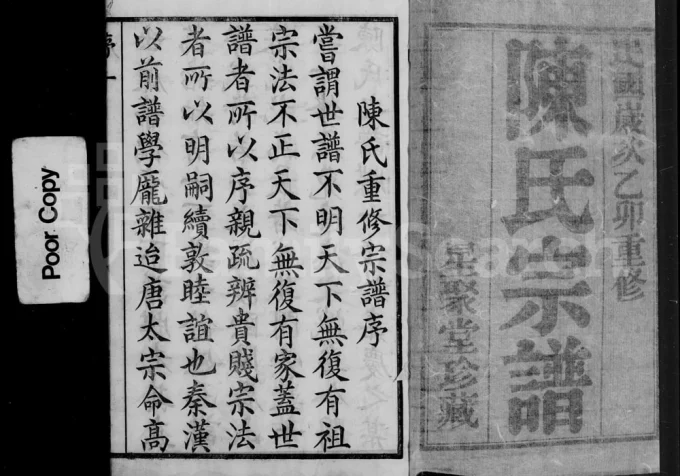 民國歲次乙卯重修
陳氏宗譜
星聚堂珍藏
陳氏重修宗譜序
嘗謂世譜不明天下無復有祖
宗法不正天下無復有家蓋世
譜者所以序親疏辨貴賤宗法
者所以明嗣續敦睦誼也秦漢
以前譜學厖雜迨唐太宗命高
序 一
Poor Copy